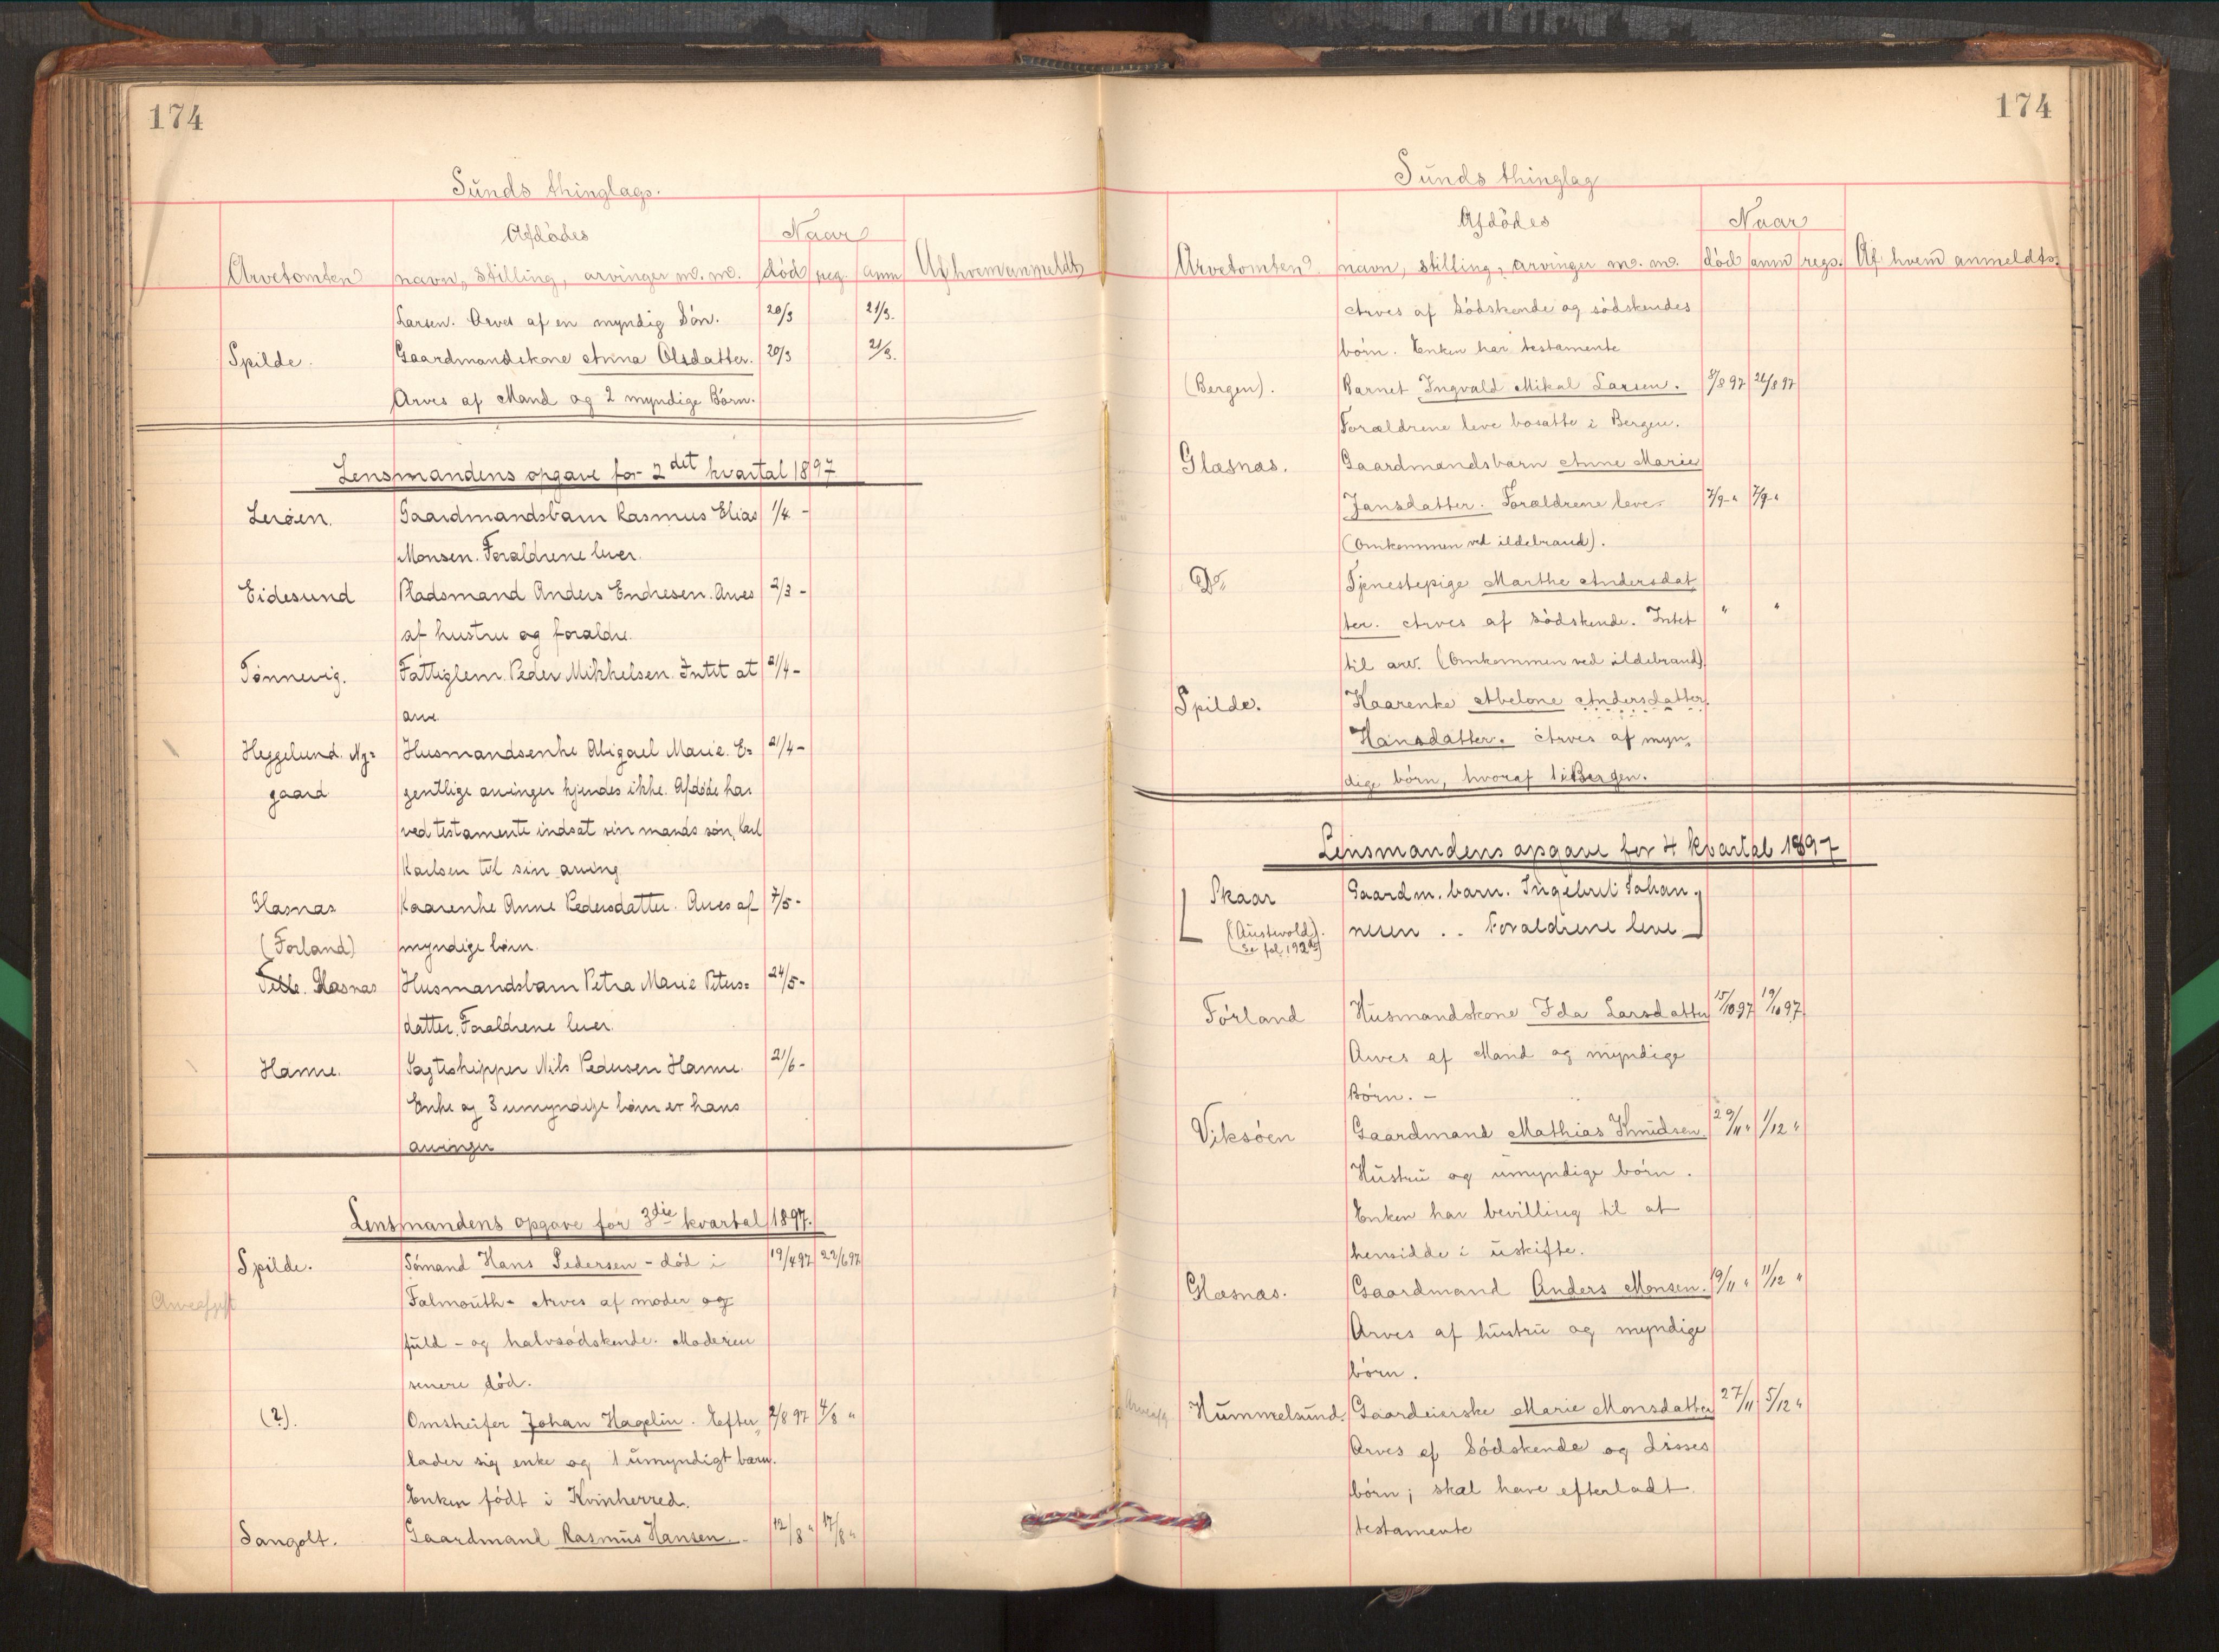 174
Sunds thinglags.
Afdødes
Naar
Arvetomten navn, stilling, arvinger m. m. død reg. anm Af hvem anmeldt
Larsen. Arves af en myndig Søn. 20/3 21/3.
Spilde. Gaardmandskone Anna Olsdatter. 20/3 21/3.
Arves af Mand og 2 myndige Børn.
Lensmandens opgave for 2det kvartal 1897
Lerøen. Gaardmandsbarn Rasmus Elias 1/4 -
Monsen. Forældrene lever.
Eidesund Pladsmand Anders Endresen. Arves 2/3 -
af hustru og forældre.
Tønnevig. Fattiglem Peder Mikkelsen. Intet at 21/4 -
arve.
Heggelund. Ny= Husmandsenke Abigael Marie. E= 21/4 -
gaard gentlige arvinger kjendes ikke. Afdøde har
ved testamente indsat sin mands søn, Carl
Karlsen til sin arving
Glasnas Kaarenke Anne Pedersdatter. Arves af 7/5 -
(Forland) myndige børn.
Glasnas Husmandsbarn Petra Marie Peters= 24/5 -
datter. Forældrene lever.
Hamre. Jagtskipper Nils Pedersen Hamre. 21/6 -
Enke og 3 umyndige børn er hans
arvinger
Lensmandens opgave for 3die kvartal 1897.
Spilde. Sømand Hans Pedersen - død i 19/4 97 22/6 97
Arveafgift Falmouth - Arves af moder og
fuld - og halvsødskende. Moderen
senere død.
(?). Omstreifer Johan Hagelin. Efter„ 2/8 97 4/8 "
lader sig enke og 1 umyndigt barn.
Enken født i Kvinherred.
Sangolt. Gaardmand Rasmus Hansen. - 12/8 " 17/8 "
174
Sunds thinglag
Afdødes
Naar
Arvetomten navn, stilling, arvinger m. m. død anm regs. Af hvem anmeldt
Arves af Sødskende og sødskendes
børn. Enken har testamente
(Bergen). Barnet Ingvald Mikal Larsen. 8/8 97 21/8 97
Forældrene leve bosatte i Bergen.
Glasnas. Gaardmandsbarn Anne Marie
Jansdatter. Forældrene leve. 7/9 - " 7/9 - "
(Omkommen ved ildebrand).
Do„ Tjenestepige Marthe Andersdat„
ter. Arves af Sødskende. Intet " "
til arv. (Omkommen ved ildebrand).
Spilde. Kaarenke Abelone Andersdatter.
Hansdatter. Arves af myn„
dige børn, hvoraf 1 i Bergen.
Lensmandens opgave for 4 kvartal 1897
Skaar Gaardm. barn. Ingebret Johan„
(Austevold). nesen . . Forældrene leve
(Se fol. 192)
Førland Husmandskone Ida Larsdatter 15/10 97 19/10 97
Arves af Mand og myndige
Børn. -
Viksøen Gaardmand Mathias Knudsen. 29/11 " 1/12 "
Hustru og umyndige børn.
Enken har bevilling til at
hensidde i uskifte.
Glasnas. Gaardmand Anders Monsen. 19/11 " 11/12 "
Arves af hustru og myndige
børn.
Hummelsund. Gaardeierske Marie Monsdatter 27/11 5/12 "
Arves af Sødskende og disses
børn; skal have efterladt
testamente